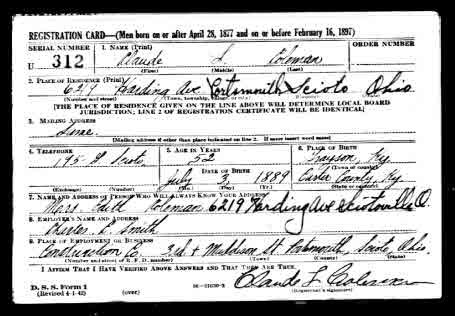 REGISTRATION CARD—(Men born on or after April 28, 1877 and on or before February 16, 1897)
SERIAL NUMBER 1. NAME (Print) ORDER NUMBER
U 312 Claude L Coleman
(First) (Middle) (Last)
2. PLACE OF RESIDENCE (Print)
6219 Harding Ave Portsmouth Scioto Ohio
(Number and street) (Town, township, village, or city) (County) (State)
[THE PLACE OF RESIDENCE GIVEN ON THE LINE ABOVE WILL DETERMINE LOCAL BOARD
JURISDICTION; LINE 2 OF REGISTRATION CERTIFICATE WILL BE IDENTICAL]
3. MAILING ADDRESS
Same
[Mailing address if other than place indicated on line 2. If same insert word same]
4. TELEPHONE 5. AGE IN YEARS 6. PLACE OF BIRTH
195 Scioto. 52 Grayson, Ky.
DATE OF BIRTH (Town or county)
July 3 1889 Carter County, Ky
(Exchange) (Number) (Mo.) (Day) (Yr.) (State or country)
7. NAME AND ADDRESS OF PERSON WHO WILL ALWAYS KNOW YOUR ADDRESS
Mrs. Faith Coleman 6219 Harding Ave Sciotoville O.
8. EMPLOYER'S NAME AND ADDRESS
Charles Smith
9. PLACE OF EMPLOYMENT OR BUSINESS
Construction Co. 3rd & Madison St. Portsmouth, Scioto, Ohio.
(Number and street or R. F. D. number) (Town) (County) (State)
I AFFIRM THAT I HAVE VERIFIED ABOVE ANSWERS AND THAT THEY ARE TRUE.
D. S. S. Form 1
(Revised 4-1-42) (over) Claude L Coleman
(Registrant's signature)